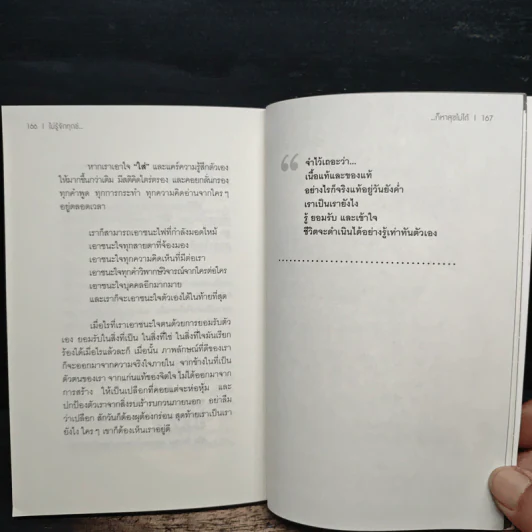 166 | ไม่รู้จักทุกข์...
หากเราเอาใจ "ใส่" และแคร์ความรู้สึกตัวเอง
ให้มากขึ้นกว่าเดิม มีสติคิดไตร่ตรอง และคอยกลั่นกรอง
ทุกคำพูด ทุกการกระทำ ทุกความคิดอ่านจากใครๆ
อยู่ตลอดเวลา
เราก็สามารถเอาชนะไฟที่กำลังมอดไหม้
เอาชนะใจทุกสายตาที่จ้องมอง
เอาชนะใจทุกความคิดเห็นที่มีต่อเรา
เอาชนะใจทุกคำวิพากษ์วิจารณ์จากใครต่อใคร
เอาชนะใจบุคคลอีกมากมาย
และเราก็จะเอาชนะใจตัวเองได้ในท้ายที่สุด
เมื่อไรที่เราเอาชนะใจตนด้วยการยอมรับตัว
เอง ยอมรับในสิ่งที่เป็น ในสิ่งที่ใช่ ในสิ่งที่ใจมันเรียก
ร้องได้เมื่อไรแล้วละก็ เมื่อนั้น ภาพลักษณ์ที่ดีของเรา
ก็จะออกมาจากความจริงใจภายใน จากข้างในที่เป็น
ตัวตนของเรา จากแก่นแท้ของจิตใจ ไม่ได้ออกมาจาก
การสร้าง ให้เป็นเปลือกที่คอยแต่จะห่อหุ้ม และ
ปกป้องตัวเราจากสิ่งรบเร้ารบกวนภายนอก อย่าลืม
ว่าเปลือก สักวันก็ต้องผุต้องกร่อน สุดท้ายเราเป็นเรา
ยังไง ใครๆ เขาก็ต้องเห็นเราอยู่ดี
...ก็หาสุขไม่ได้ | 167
“ จำไว้เถอะว่า...
เนื้อแท้และของแท้
อย่างไรก็จริงแท้อยู่วันยังค่ำ
เราเป็นเรายังไง
รู้ ยอมรับ และเข้าใจ
ชีวิตจะดำเนินได้อย่างรู้เท่าทันตัวเอง